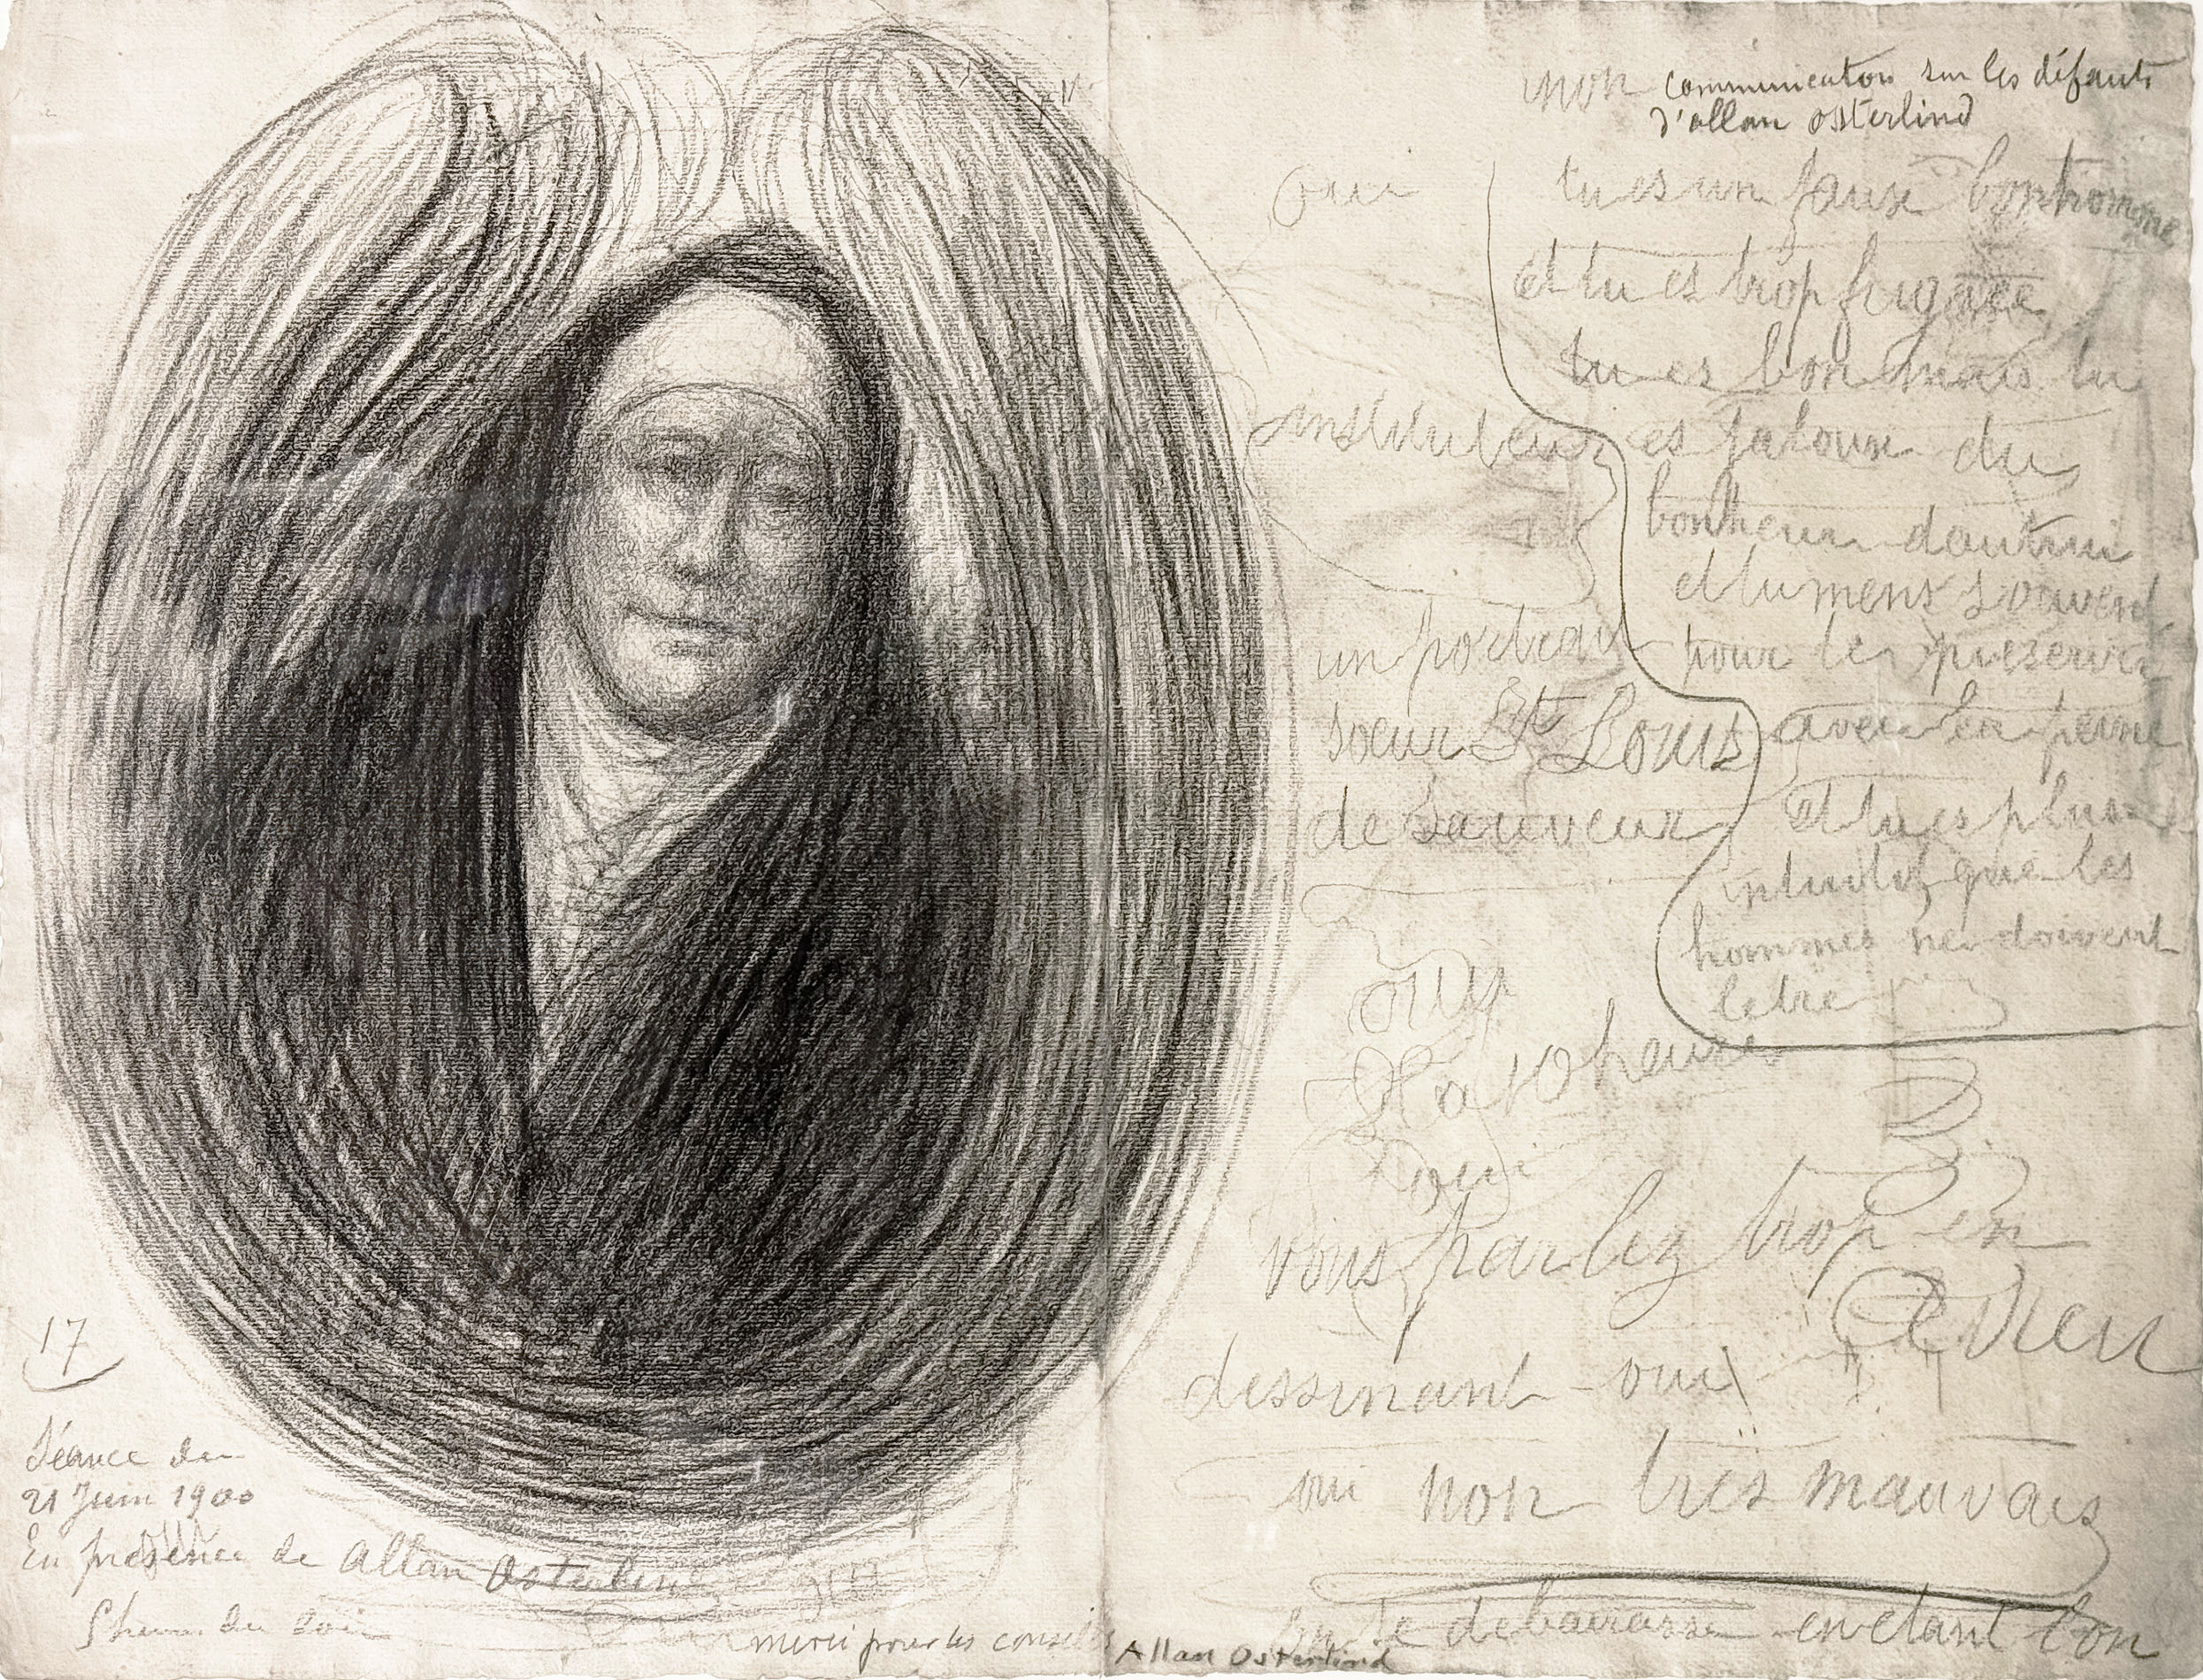 non communication sur les défauts
d'allan osterlind
oui
tu es un faux bonhomme
et tu es trop fugace
tu es bon mais tu
instituteur
es jaloux du
bonheur dautrui
et tu mens souvent
un portrait
pour les preserver
soeur St Louis
avec la peine
de Sauveur
et tu es plus
intuitif que les
hommes ne doivent
letre
oui
a 10 heures
oui
vous parlez trop en
Dieu
dessinant - oui
oui non tres mauvais
te debarasse en etant bon
17
Séance du
21 Juin 1900
En présence de Allan Osterlind
heures du soir
merci pour les conseils
Allan Osterlind